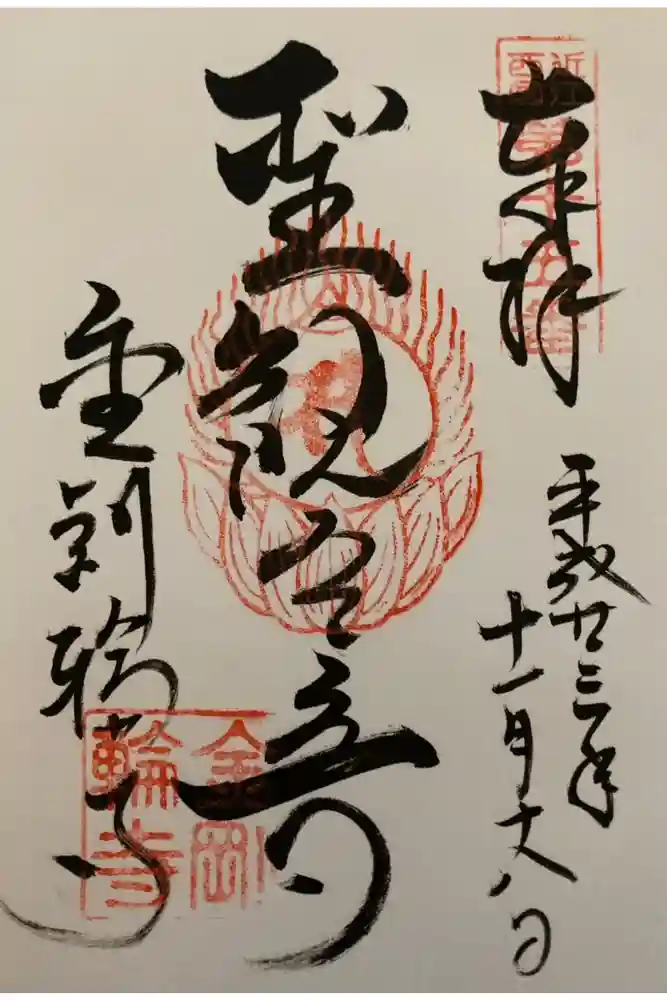 近江西国第十五番
奉拝
平成廿三年
十一月
聖観世音
金剛輪寺
金剛
輪寺